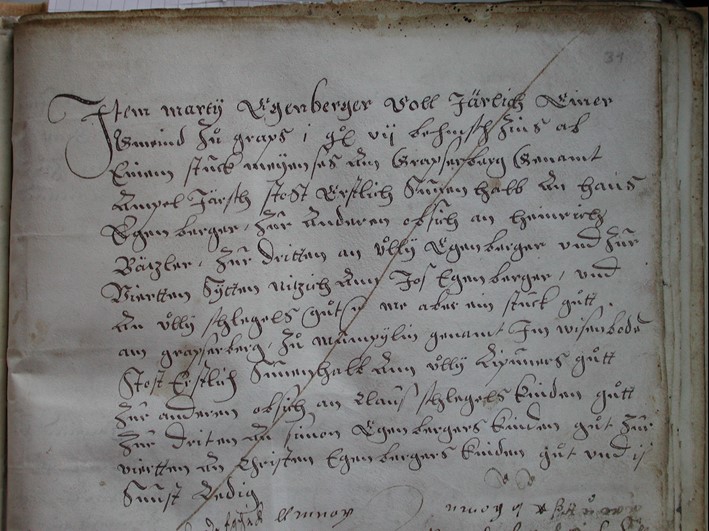 34
Item martÿ Egenberger Soll Järlich Einer
Gmeind Zů graps j gl vij behmsch Zins ab
Einem stuck meÿenses Am Grapserberg Genamt
Ampel Järsch stost Erstlich Sunen halb An hans
Egenberger, Zur Anderen obsich an heinrich
Bätzler, Zur dritten an ůlly Egenberger und Zur
Viertten Sÿtten nitzich Ann Jos Egenberger, und
An ůlly schlegels gůt me aber ein stuck gůtt
am grapserberg, Zů genamt Im wisenboden
Stost Erstlich Sunenhalb Ann ůlly gůtt
Zur anderen obsich an Claus schlegels kinden gůtt
Zur driten An simon Egenbergers kinden gůt Zur
viertten An Christen Egenbergers kinden gůt und is
Sunst Ledig